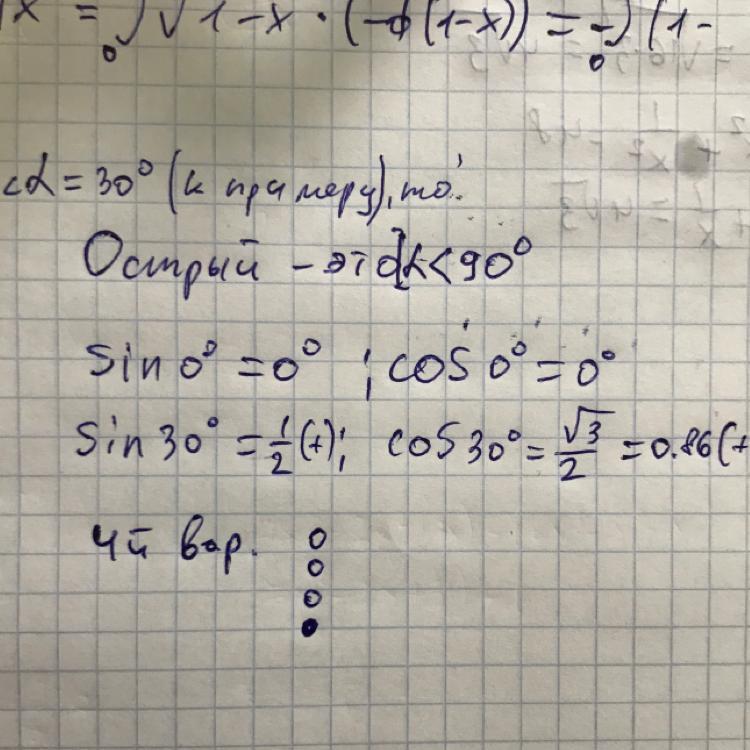 x = ₀∫ √1-x · (-d(1-x)) = -₀∫ (1-
∠α = 30° (к примеру), то:
Острый - это ∠α < 90°
Sin 0° = 0° ; cos 0° = 0°
Sin 30° = 1/2 (+); cos 30° = √3/2 = 0.86 (+
4й вар.